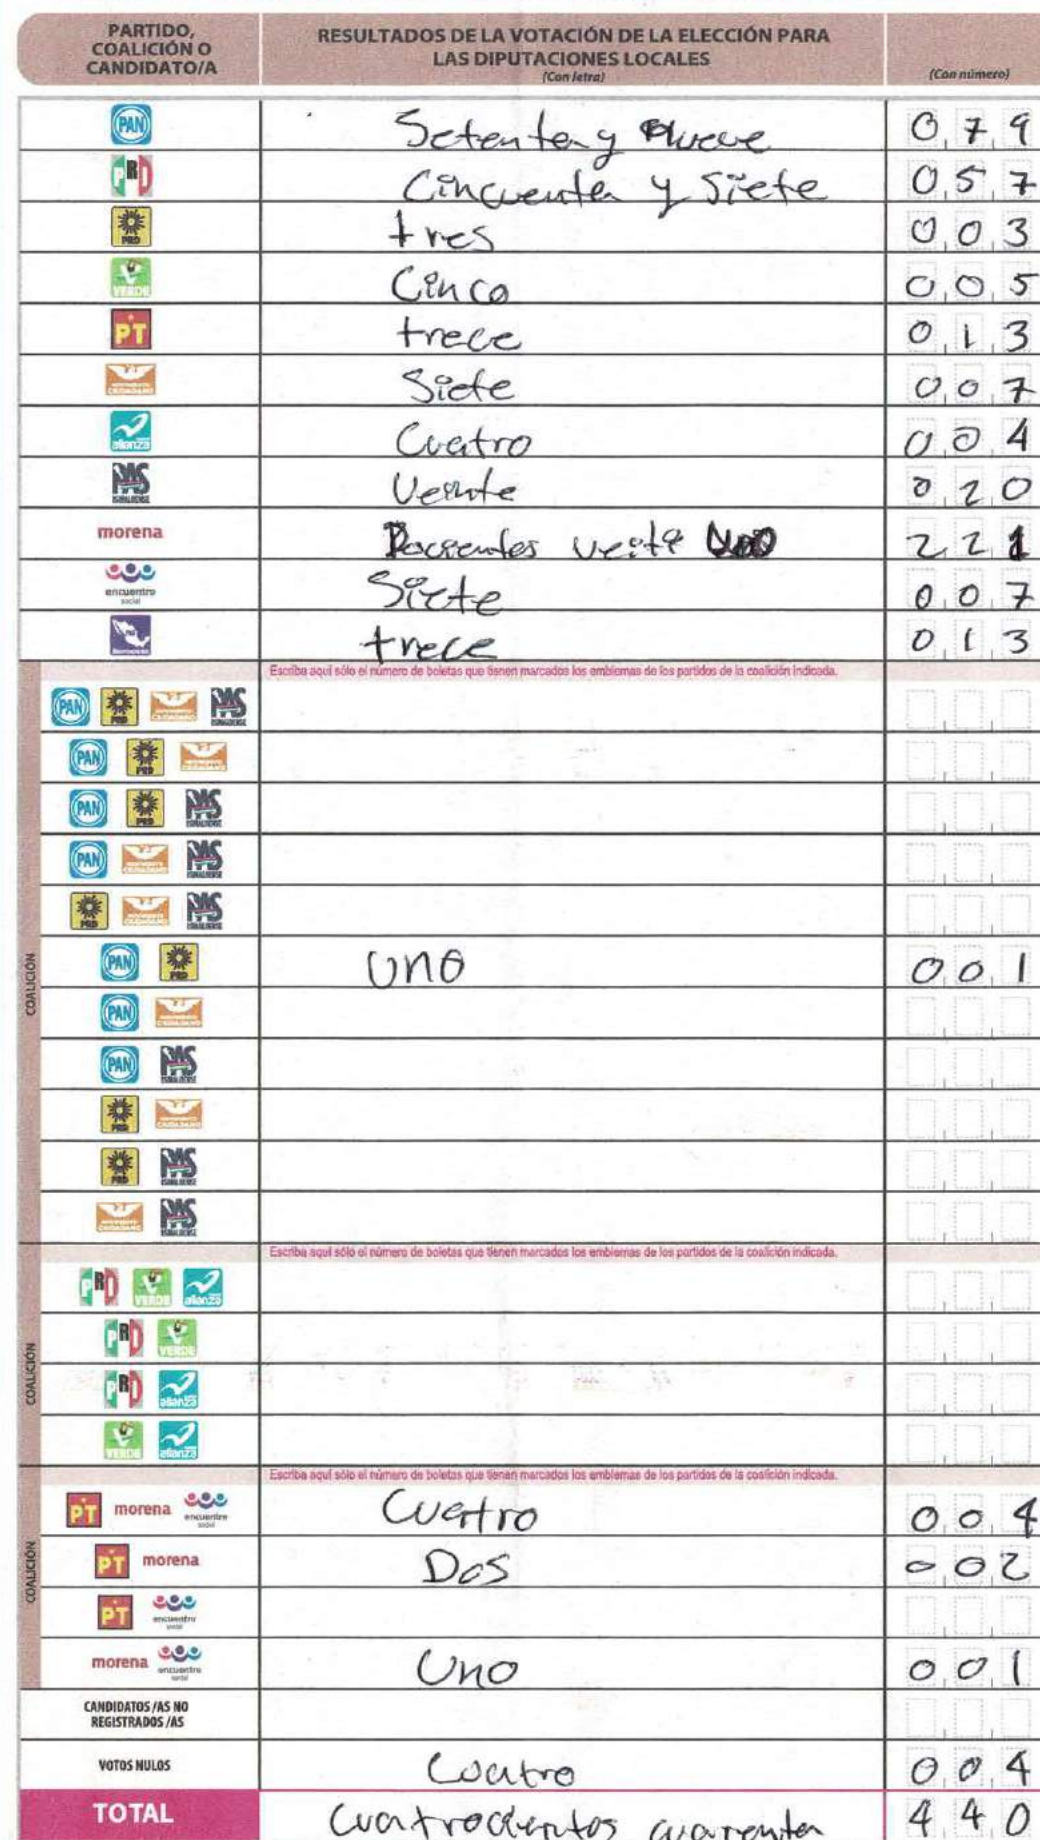 PARTIDO, COALICIÓN O CANDIDATO/A
RESULTADOS DE LA VOTACIÓN DE LA ELECCIÓN PARA LAS DIPUTACIONES LOCALES
(Con letra)
(Con número)
PAN Setenta y nueve 0 7 9
PRI Cincuenta y Siete 0 5 7
PRD tres 0 0 3
VERDE Cinco 0 0 5
PT trece 0 1 3
MOVIMIENTO CIUDADANO Siete 0 0 7
alianza Cuatro 0 0 4
PAS SINALOENSE Veinte 0 2 0
morena Docientos veite uno 2 2 1
encuentro social Siete 0 0 7
trece 0 1 3
Escriba aquí sólo el número de boletas que tienen marcados los emblemas de los partidos de la coalición indicada.
COALICIÓN
PAN PRD MOVIMIENTO CIUDADANO PAS SINALOENSE
PAN PRD MOVIMIENTO CIUDADANO
PAN PRD PAS SINALOENSE
PAN MOVIMIENTO CIUDADANO PAS SINALOENSE
PRD MOVIMIENTO CIUDADANO PAS SINALOENSE
PAN PRD UNO 0 0 1
PAN MOVIMIENTO CIUDADANO
PAN PAS SINALOENSE
PRD MOVIMIENTO CIUDADANO
PRD PAS SINALOENSE
MOVIMIENTO CIUDADANO PAS SINALOENSE
Escriba aquí sólo el número de boletas que tienen marcados los emblemas de los partidos de la coalición indicada.
COALICIÓN
PRI VERDE alianza
PRI VERDE
PRI alianza
VERDE alianza
Escriba aquí sólo el número de boletas que tienen marcados los emblemas de los partidos de la coalición indicada.
COALICIÓN
PT morena encuentro social Cuatro 0 0 4
PT morena Dos 0 0 2
PT encuentro social
morena encuentro social Uno 0 0 1
CANDIDATOS/AS NO REGISTRADOS/AS
VOTOS NULOS Cuatro 0 0 4
TOTAL Cuatrocientos cuarenta 4 4 0